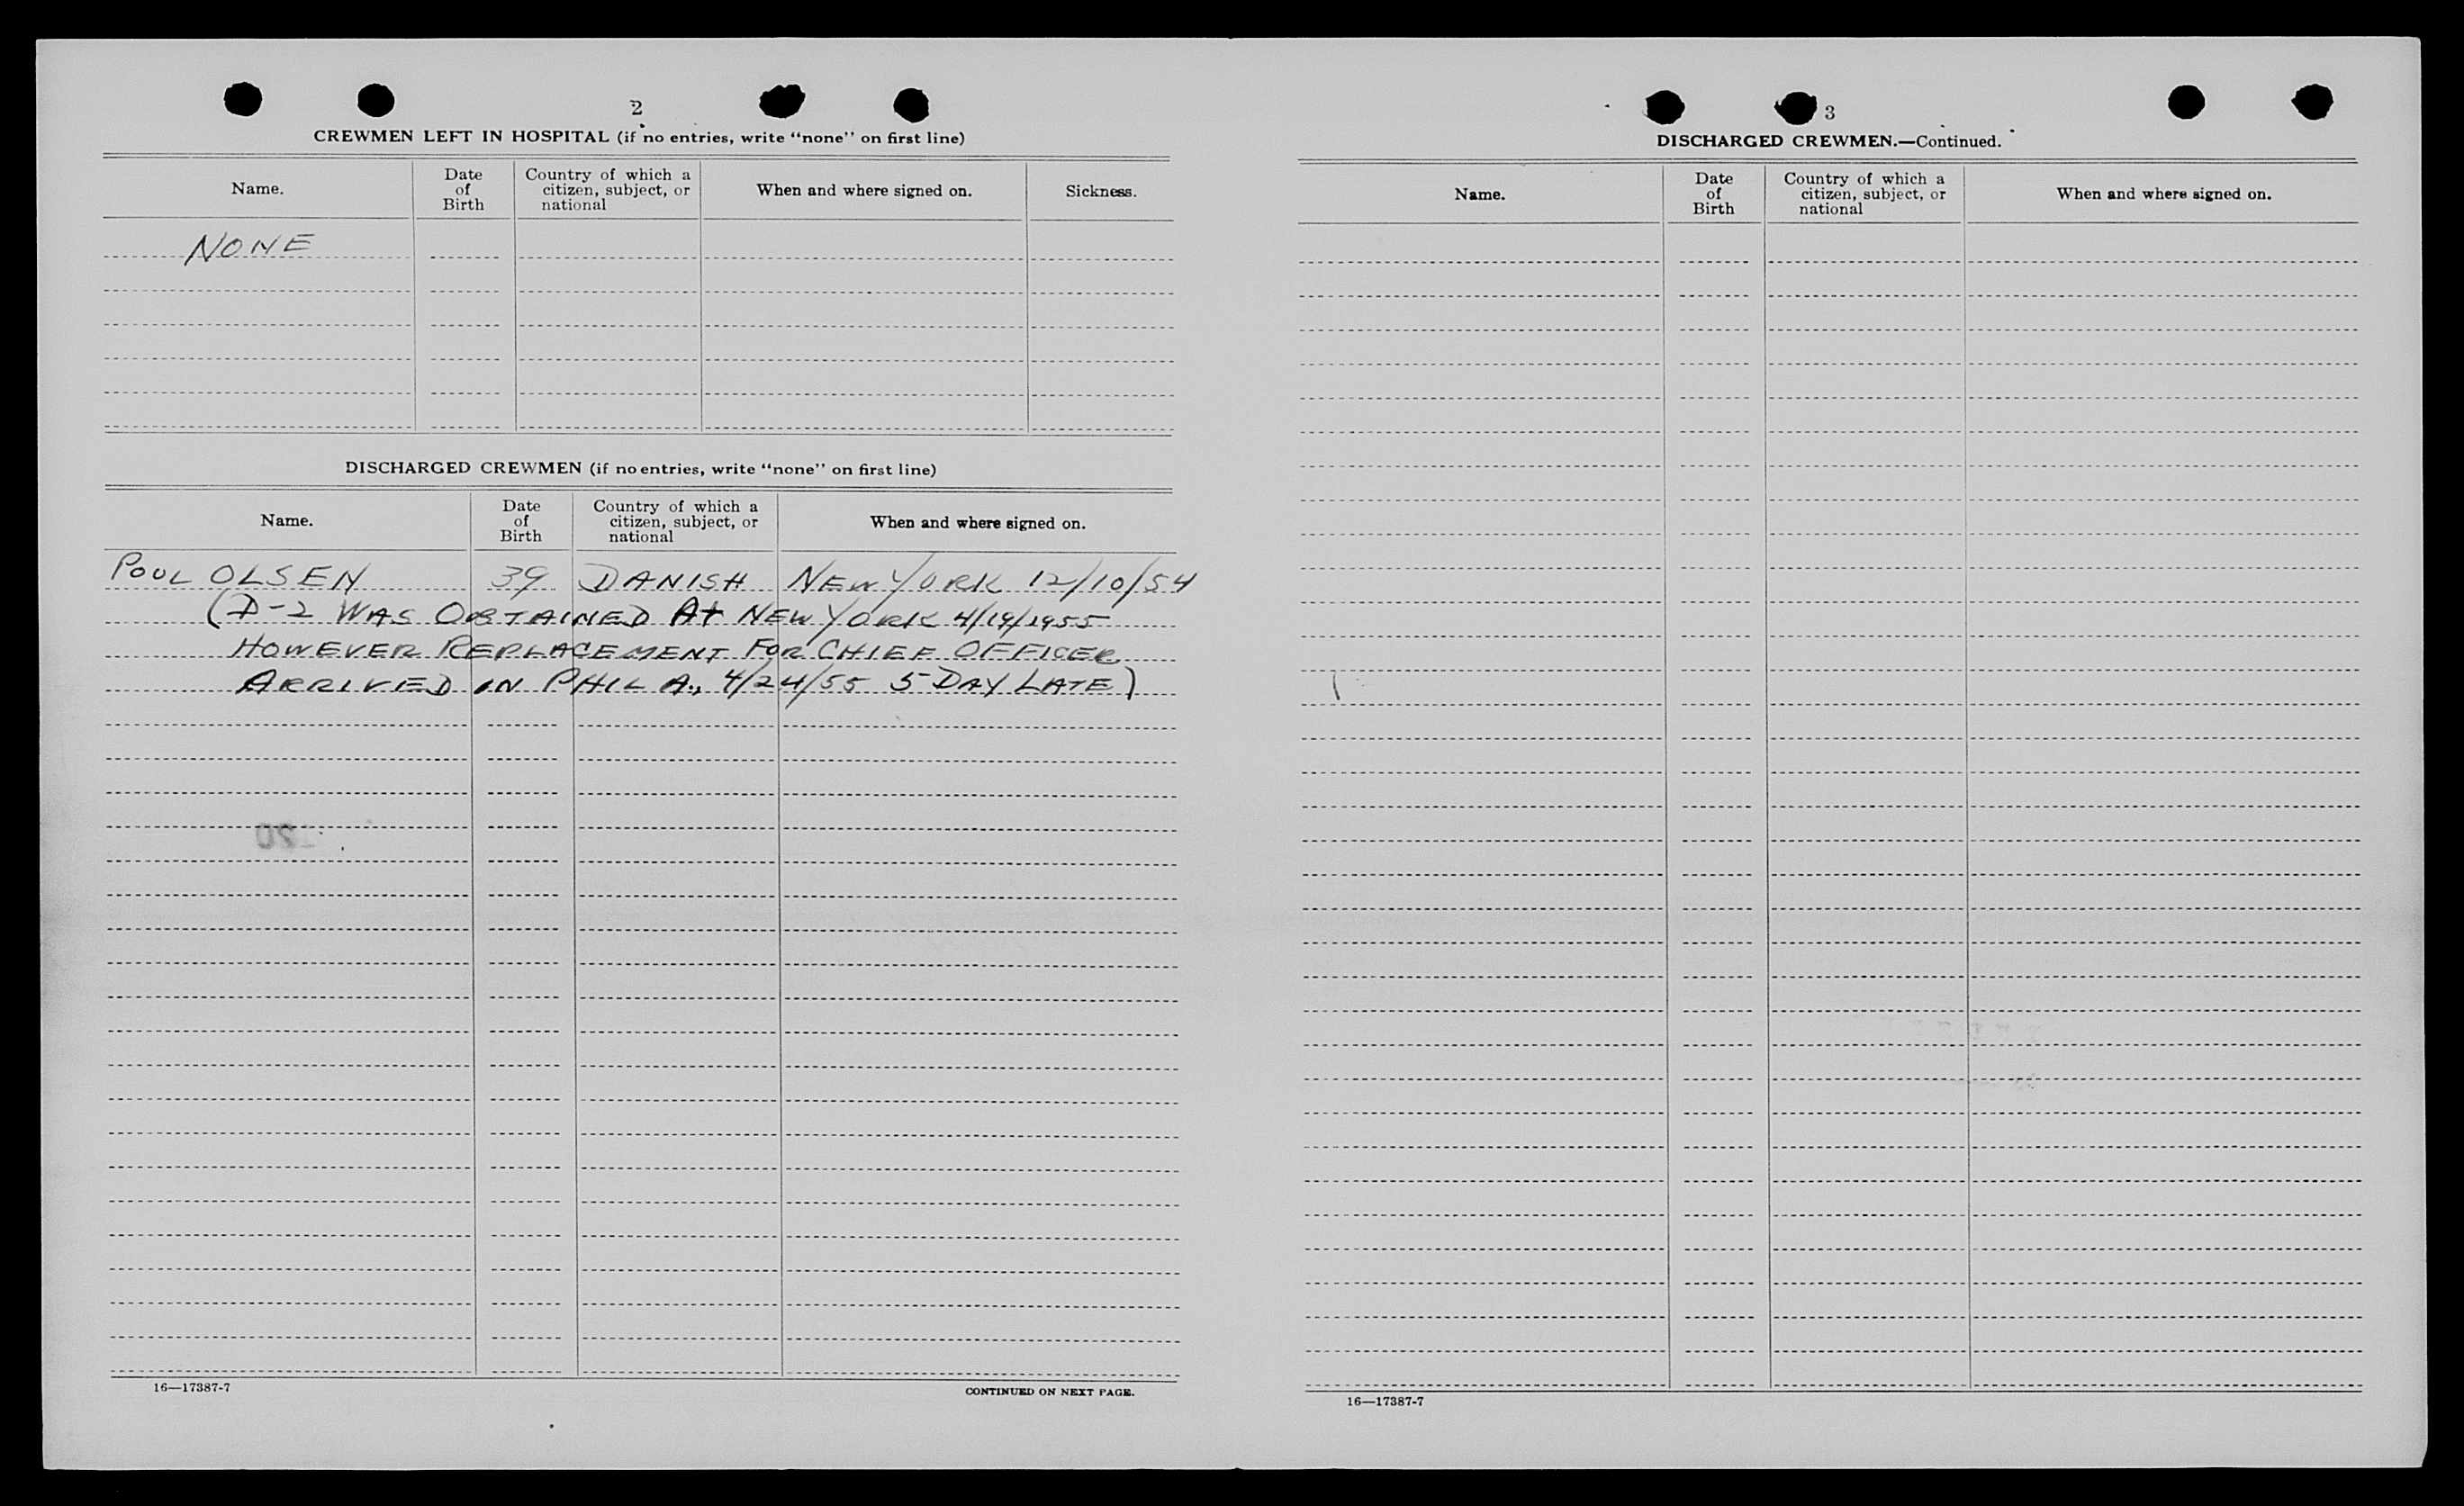 2
CREWMEN LEFT IN HOSPITAL (if no entries, write "none" on first line)
Name. Date of Birth Country of which a citizen, subject, or national When and where signed on. Sickness.
NONE
DISCHARGED CREWMEN (if no entries, write "none" on first line)
Name. Date of Birth Country of which a citizen, subject, or national When and where signed on.
POUL OLSEN 39 DANISH NEW YORK 12/10/54
(D-2 WAS OBTAINED At NEW YORK 4/19/1955
HOWEVER REPLACEMENT FOR CHIEF OFFICER
ARRIVED IN PHILA., 4/24/55 5 DAY LATE)
16—17387-7 CONTINUED ON NEXT PAGE.
3
DISCHARGED CREWMEN.—Continued.
Name. Date of Birth Country of which a citizen, subject, or national When and where signed on.
16—17387-7